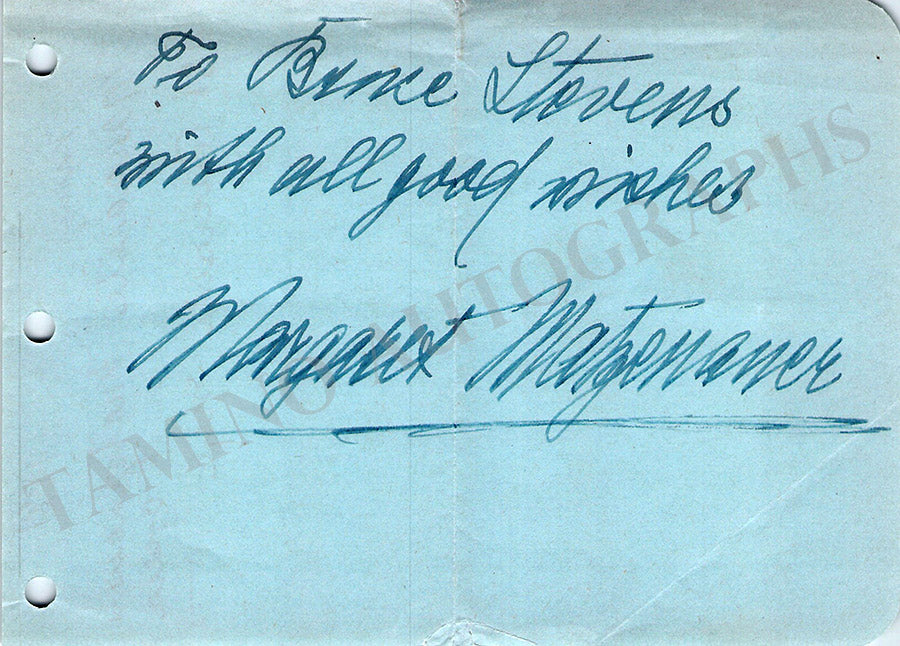 To Bruce Stevens
with all good wishes
Margaret Matzenauer
TAMINO AUTOGRAPHS